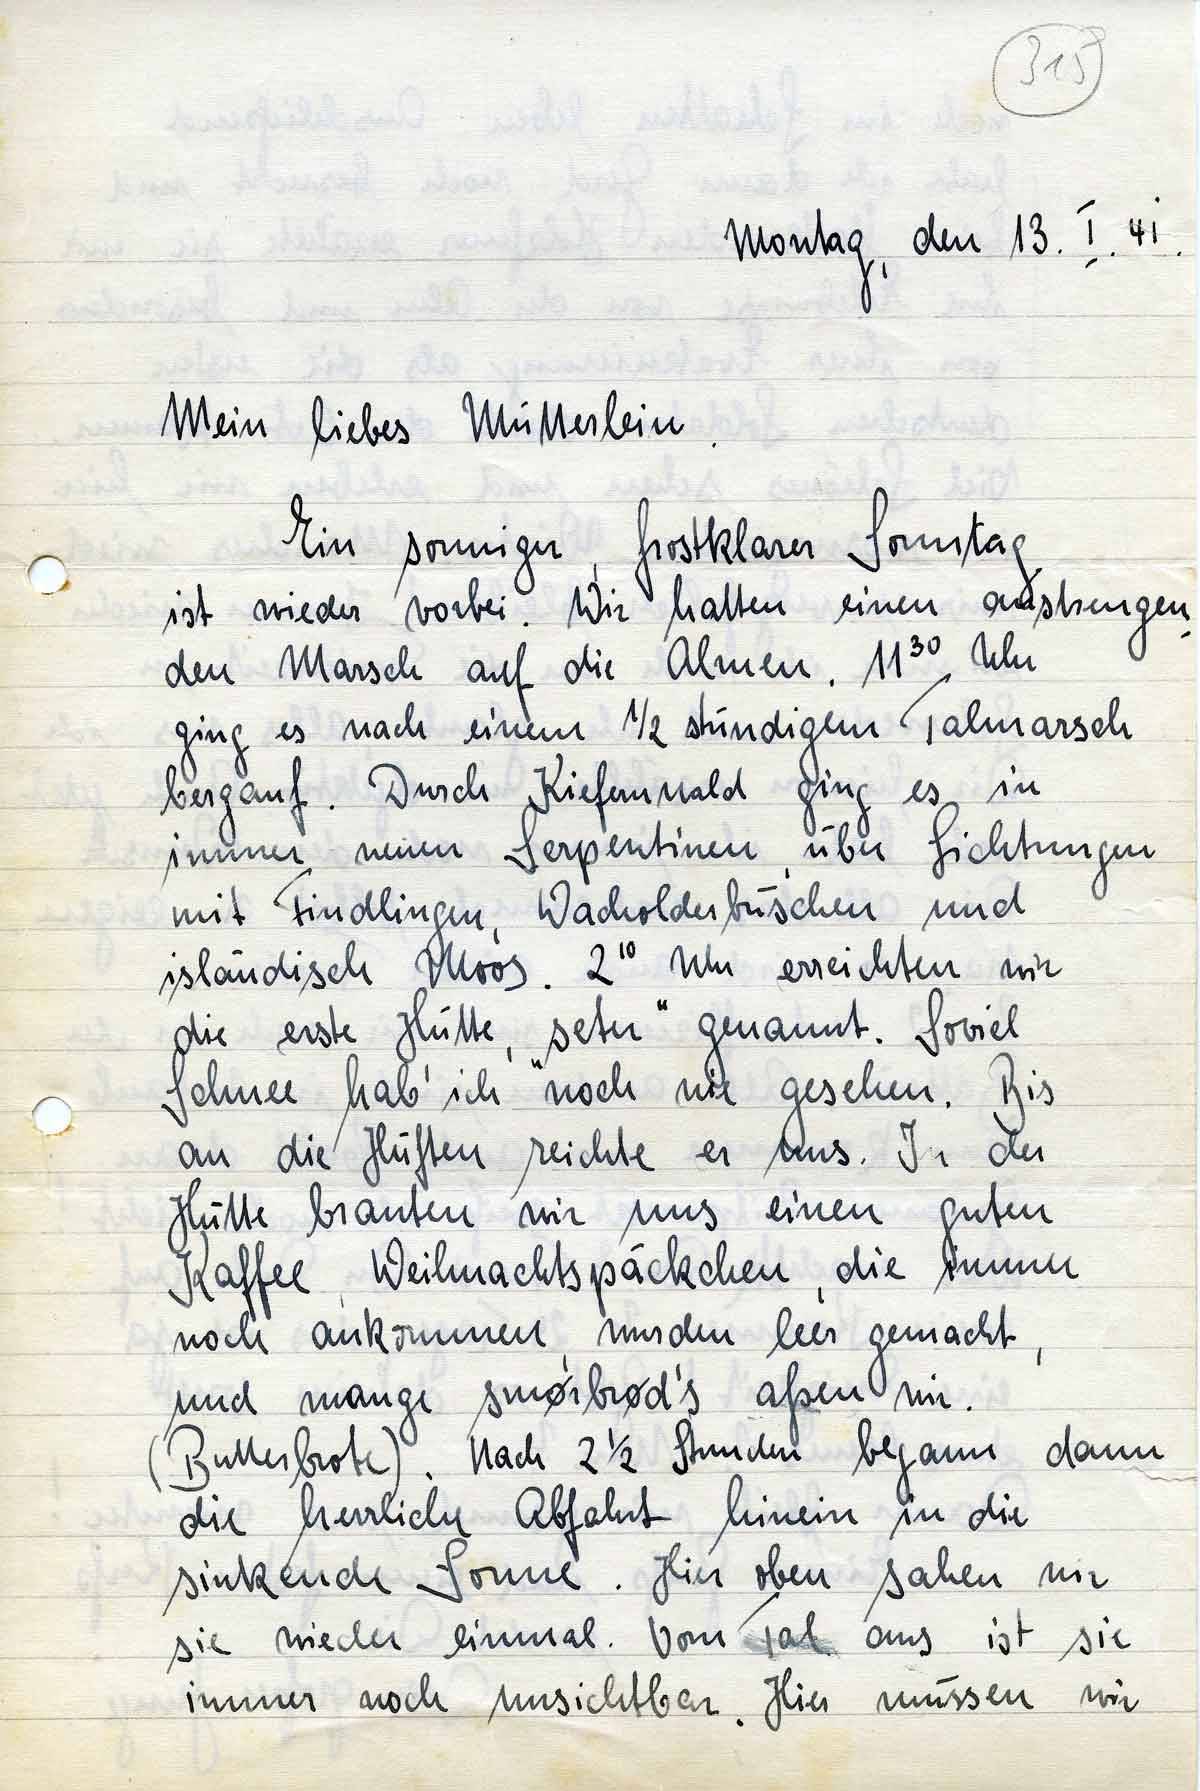 315
Montag, den 13. I. 41.
Mein liebes Mütterlein.
Ein sonniger, frostklarer Sonntag
ist wieder vorbei. Wir hatten einen anstrengen
den Marsch auf die Almen. 11³⁰ Uhr
ging es nach einem 1/2 stündigem Talmarsch
bergauf. Durch Kiefernwald ging es in
immer neuen Serpentinen, über Lichtungen
mit Findlingen, Wacholderbüschen und
isländisch Moos. 2¹⁰ Uhr erreichten wir
die erste Hütte, „seter" genannt. Soviel
Schnee hab' ich noch nie gesehen. Bis
an die Hüften reichte er uns. In der
Hütte brauten wir uns einen guten
Kaffee, Weihnachtspäckchen, die immer
noch ankommen, wurden leer gemacht,
und mange smørbrød's aßen wir.
(Butterbrote). Nach 2 1/2 Stunden begann dann
die herrliche Abfahrt hinein in die
sinkende Sonne. Hier oben sahen wir
sie wieder einmal. Vom Tal aus ist sie
immer noch unsichtbar. Hier müssen wir